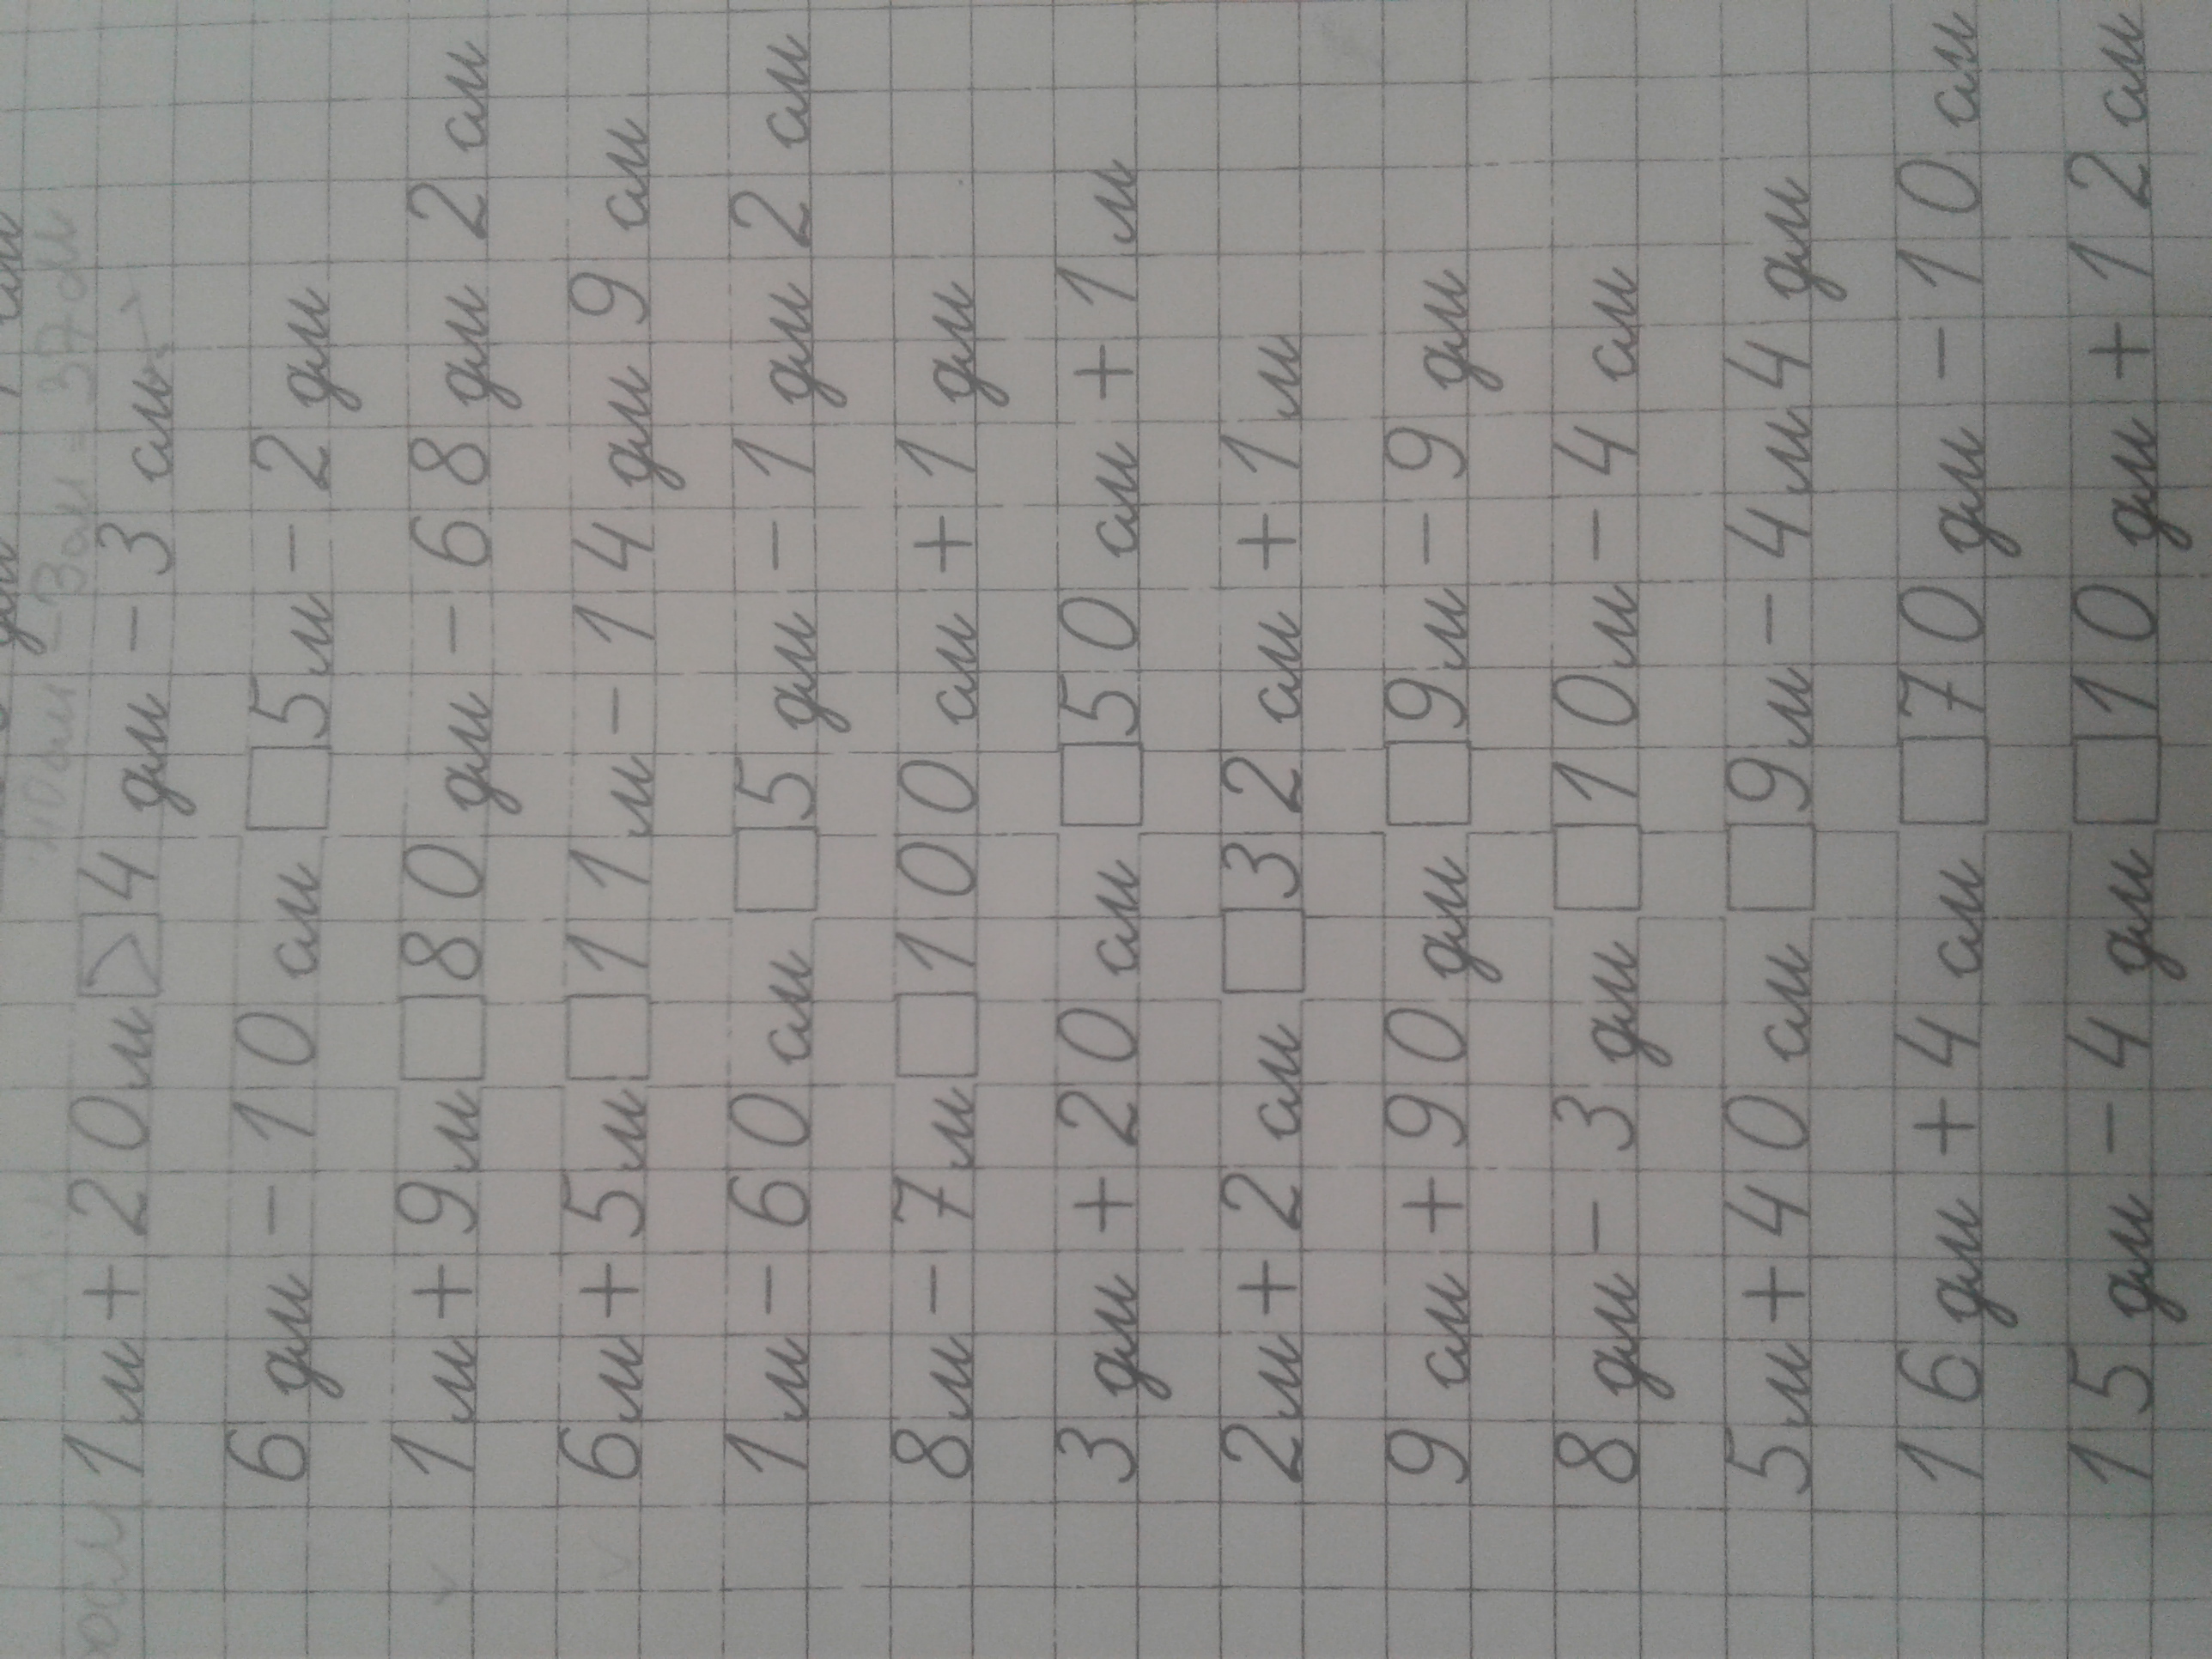 1м+20м>4 дм-3 см
6 дм-10 см □ 5м-2 дм
1м+9м □ 80 дм-68 дм 2 см
6м+5м □ 11м-14 дм 9 см
1м-60 см □ 5 дм-1 дм 2 см
8м-7м □ 100 см+1 дм
3 дм+20 см □ 50 см+1м
2м+2 см □ 32 см+1м
9 см+90 дм □ 9м-9 дм
8 дм-3 дм □ 10м-4 см
5м+40 см □ 9м-4м4 дм
16 дм+4 см □ 70 дм-10 см
15 дм-4 дм □ 10 дм+12 см